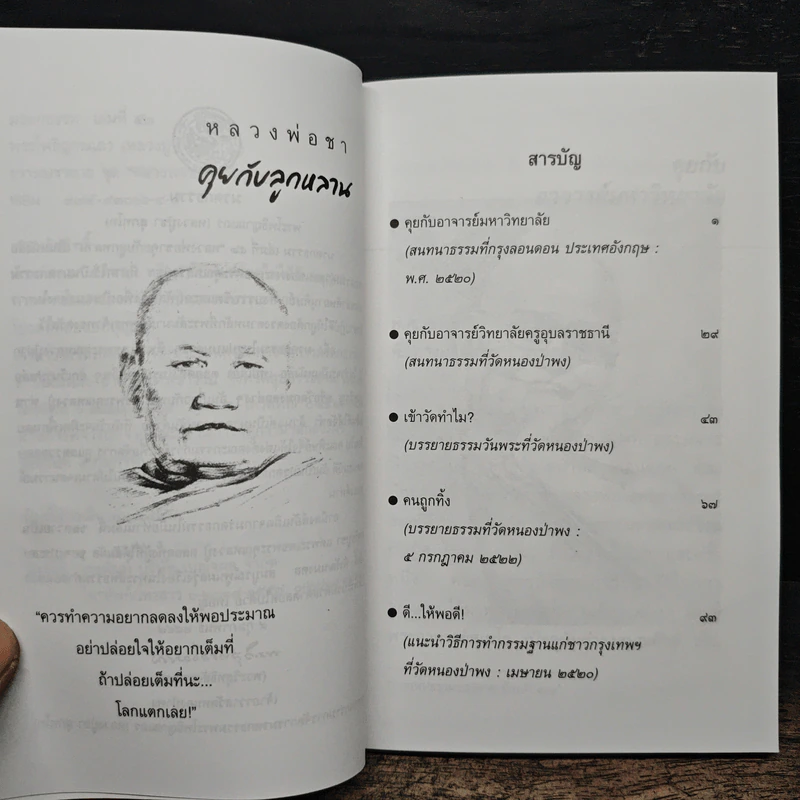 หลวงพ่อชา
คุยกับลูกหลาน
"ควรทำความอยากลดลงให้พอประมาณ
อย่าปล่อยใจให้อยากเต็มที่
ถ้าปล่อยเต็มที่นะ...
โลกแตกเลย!"
สารบัญ
● คุยกับอาจารย์มหาวิทยาลัย ๑
(สนทนาธรรมที่กรุงลอนดอน ประเทศอังกฤษ :
พ.ศ. ๒๕๒๐)
● คุยกับอาจารย์วิทยาลัยครูอุบลราชธานี ๒๙
(สนทนาธรรมที่วัดหนองป่าพง)
● เข้าวัดทำไม? ๔๓
(บรรยายธรรมวันพระที่วัดหนองป่าพง)
● คนถูกทิ้ง ๖๗
(บรรยายธรรมที่วัดหนองป่าพง :
๕ กรกฎาคม ๒๕๒๒)
● ดี...ให้พอดี! ๙๓
(แนะนำวิธีการทำกรรมฐานแก่ชาวกรุงเทพฯ
ที่วัดหนองป่าพง : เมษายน ๒๕๒๐)